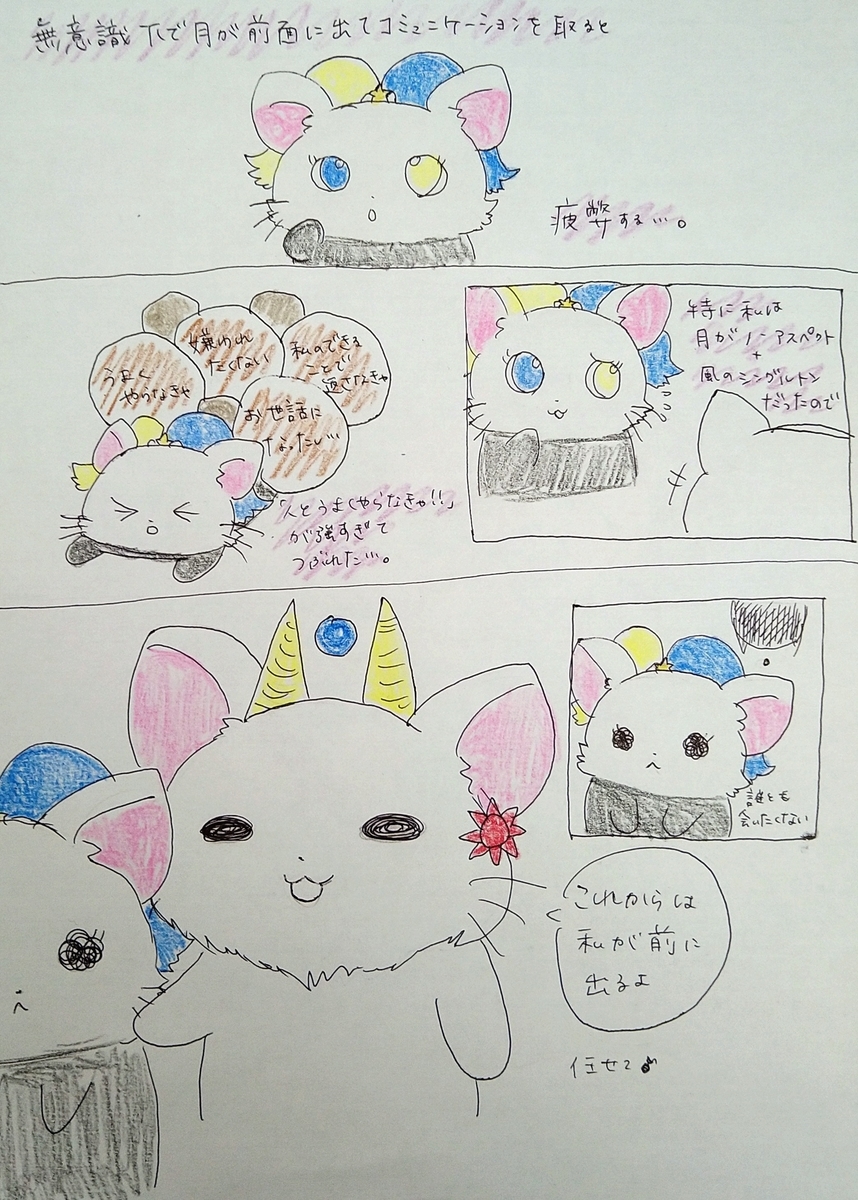 無意識下で月が前面に出てコミュニケーションを取ると
疲弊する…。
うまく
やらなきゃ
嫌われ
たくない
私のできる
ことで
返さなきゃ
お世話に
なったし…
「人とうまくやらなきゃ!!」
が強すぎて
つぶれた…。
特に私は
月がノーアスペクト
+
風のシングルトン
だったので
誰とも
会いたくない
これからは
私が前に
出るよ
任せて♪